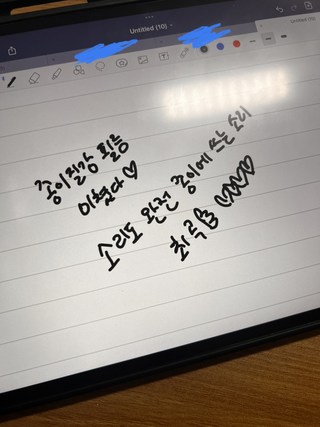 Untitled (10)
Untitled (1
종이질감 필름
미쳤다♡
소리도 완전 종이에 쓰는 소리
최고